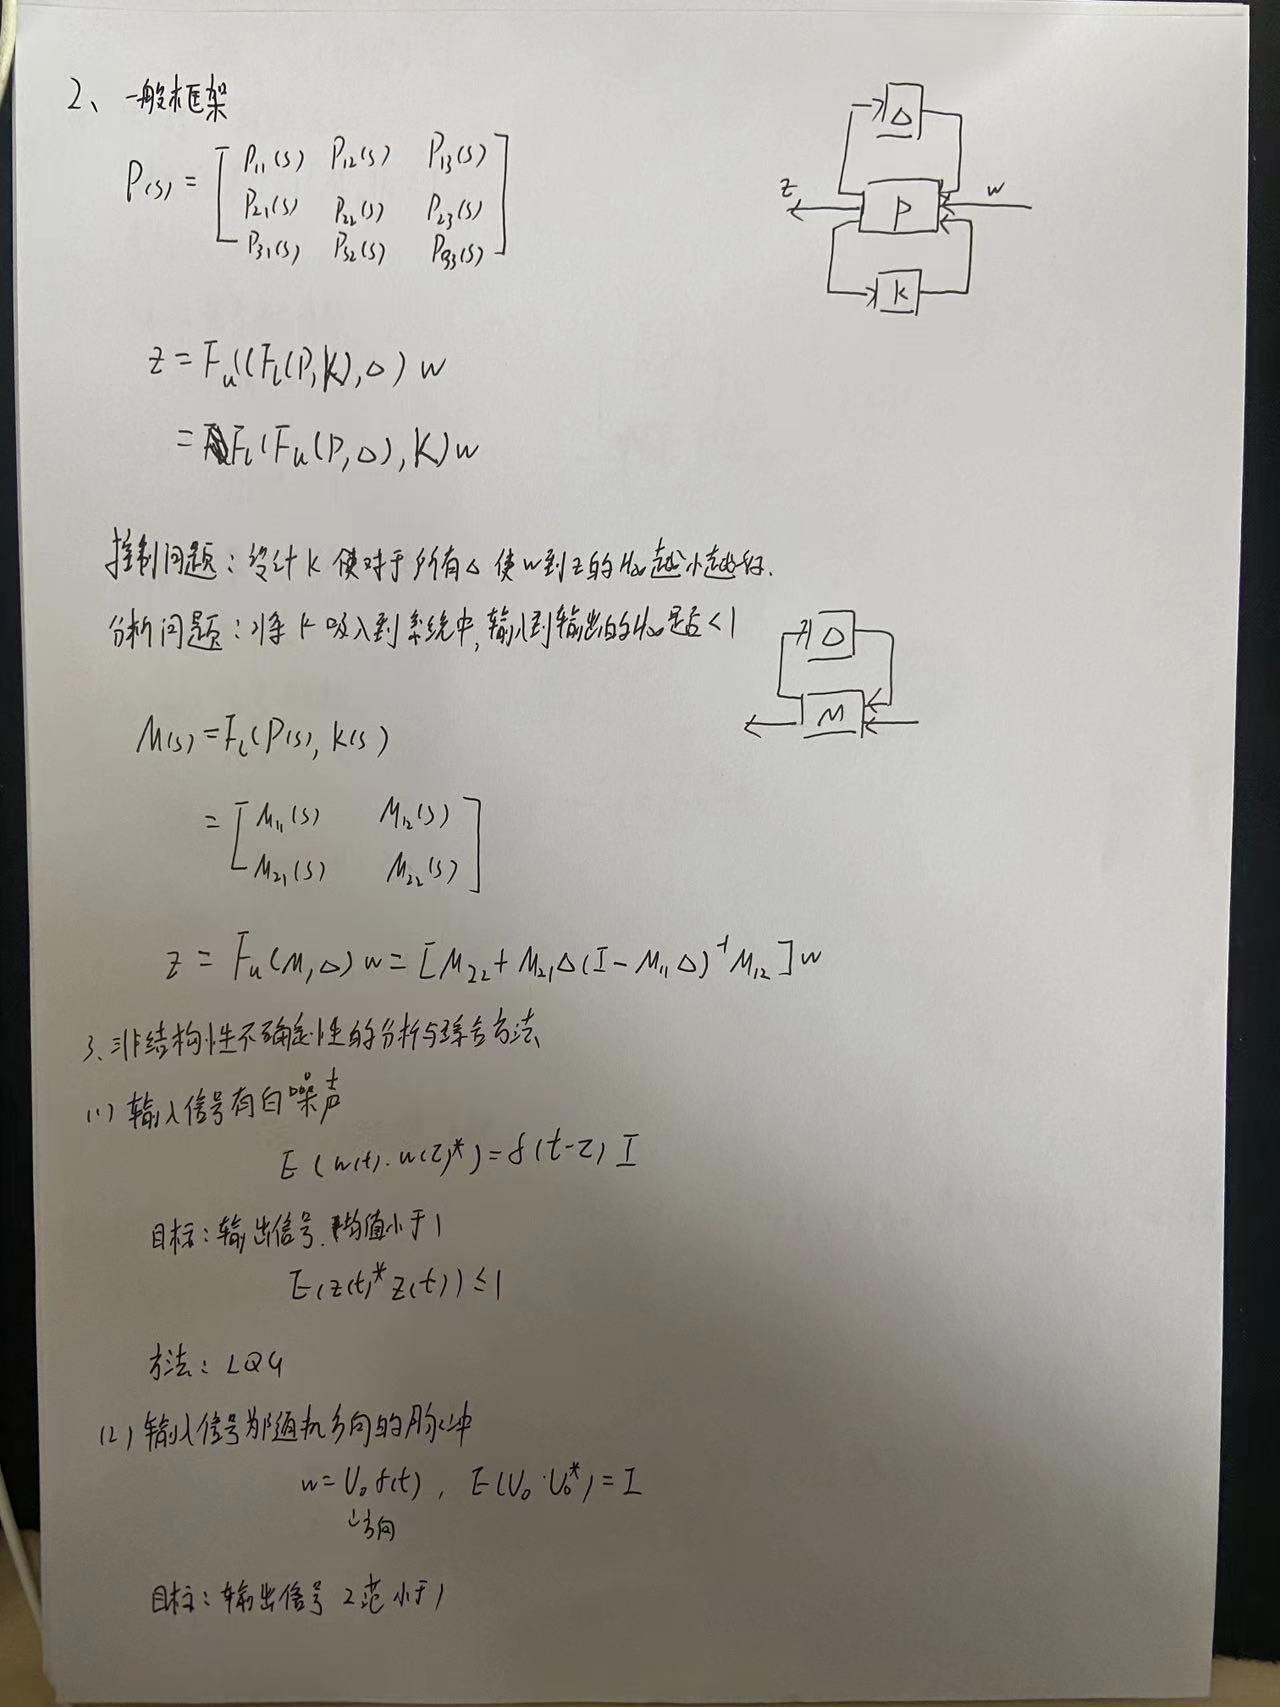 2、一般框架
P(s) = [ P11(s) P12(s) P13(s)
P21(s) P22(s) P23(s)
P31(s) P32(s) P33(s) ]
Δ
z P w
K
z = Fu((Fl(P,K),Δ) w
= Fl(Fu(P,Δ),K)w
控制问题：设计K 使对于所有Δ 使w到z的H∞越小越好.
分析问题：将K吸入到系统中,输入到输出的H∞是否<1
Δ
M
M(s) = Fl(P(s), K(s)
= [ M11(s) M12(s)
M21(s) M22(s) ]
z = Fu(M,Δ) w = [M22 + M21Δ(I - M11Δ)⁻¹M12]w
3、非结构性不确定性的分析与综合方法
(1) 输入信号有白噪声
E(w(t)·w(τ)*) = δ(t-τ) I
目标：输出信号 均值小于1
E(z(t)* z(t)) ≤ 1
方法：LQG
(2) 输入信号为随机方向的脉冲
w = U₀δ(t), E(U₀·U₀*) = I
↓方向
目标：输出信号 2范小于1